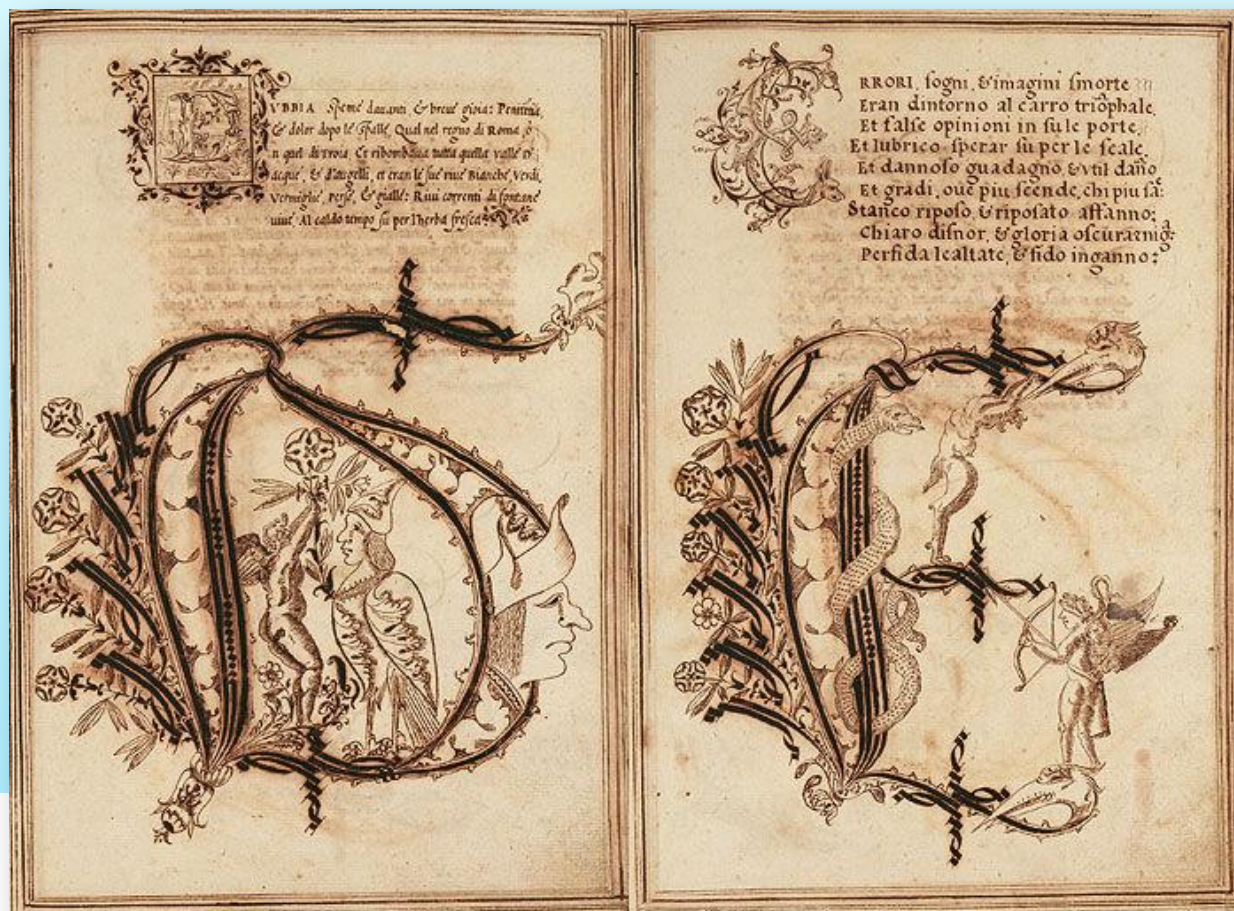 D
VBBIA Speme dauanti, & breue gioia: Penitẽtia,
& dolor dopo le spalle, Qual nel regno di Roma, o
n quel di Troia Et ribombaua tutta quella valle D'
acque, & d'augelli, et eran le sue riue Bianche, Verdi,
Vermiglie, Perse, & gialle: Riui correnti di fontane
viue Al caldo tempo su per l'herba fresca:
D
E
RRORI, sogni, & imagini smorte
Eran dintorno al carro triõphale,
Et false opinioni in su le porte,
Et lubrico sperar su per le scale,
Et dannoso guadagno, & vtil dãno,
Et gradi, oue piu scende, chi piu sa:
Stanco riposo, & riposato affanno;
Chiaro disnor, & gloria oscura
Perfida lealtate, & fido inganno:
E